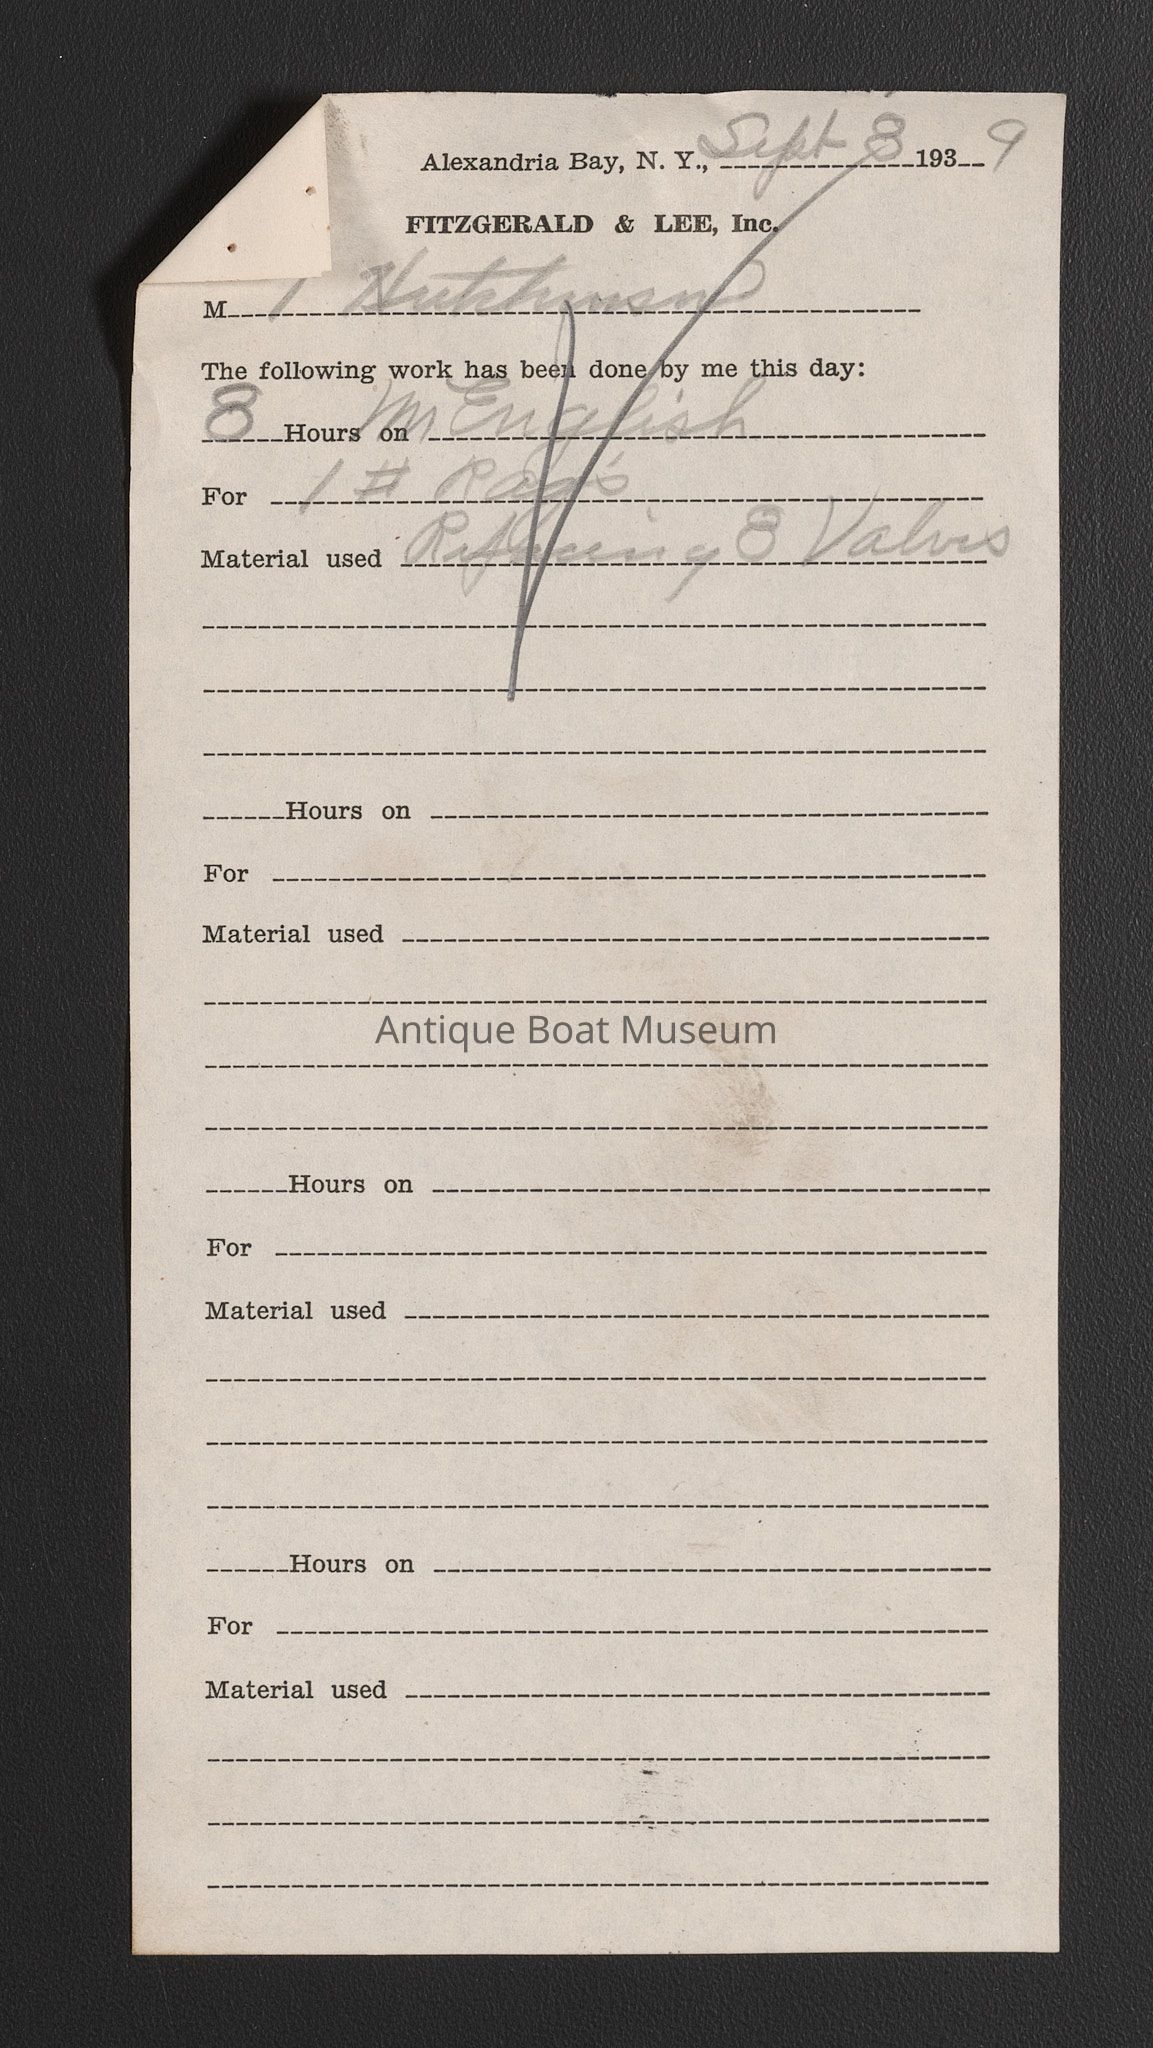 Alexandria Bay, N. Y., Sept 8 1939
FITZGERALD & LEE, Inc.
M Hutchinson
The following work has been done by me this day:
8 Hours on M English
For 1 # Rags
Material used Refacing 8 Valves
Hours on
For
Material used
Antique Boat Museum
Hours on
For
Material used
Hours on
For
Material used